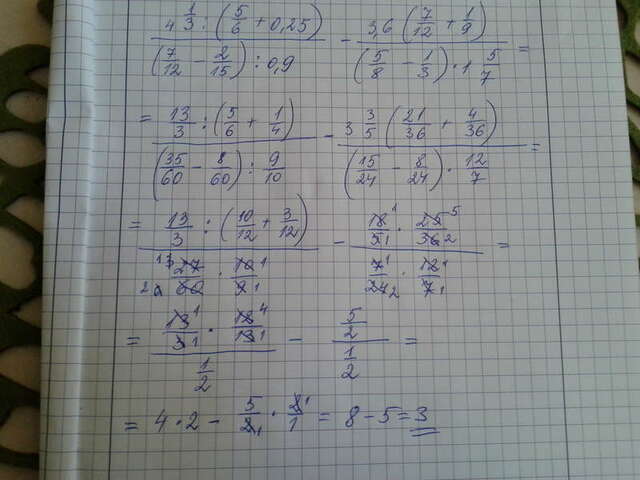 4 1/3 : (5/6 + 0,25) / (7/12 − 2/15) : 0,9 − 3,6 (7/12 + 1/9) / (5/8 − 1/3) · 1 5/7 =
= 13/3 : (5/6 + 1/4) / (35/60 − 8/60) : 9/10 − 3 3/5 (21/36 + 4/36) / (15/24 − 8/24) · 12/7 =
= 13/3 : (10/12 + 3/12) / 27/60 · 10/9 − 18/5 · 25/36 / 7/24 · 12/7 =
= 13/3 · 12/13 / 1/2 − 5/2 / 1/2 =
= 4 · 2 − 5/2 · 2/1 = 8 − 5 = 3